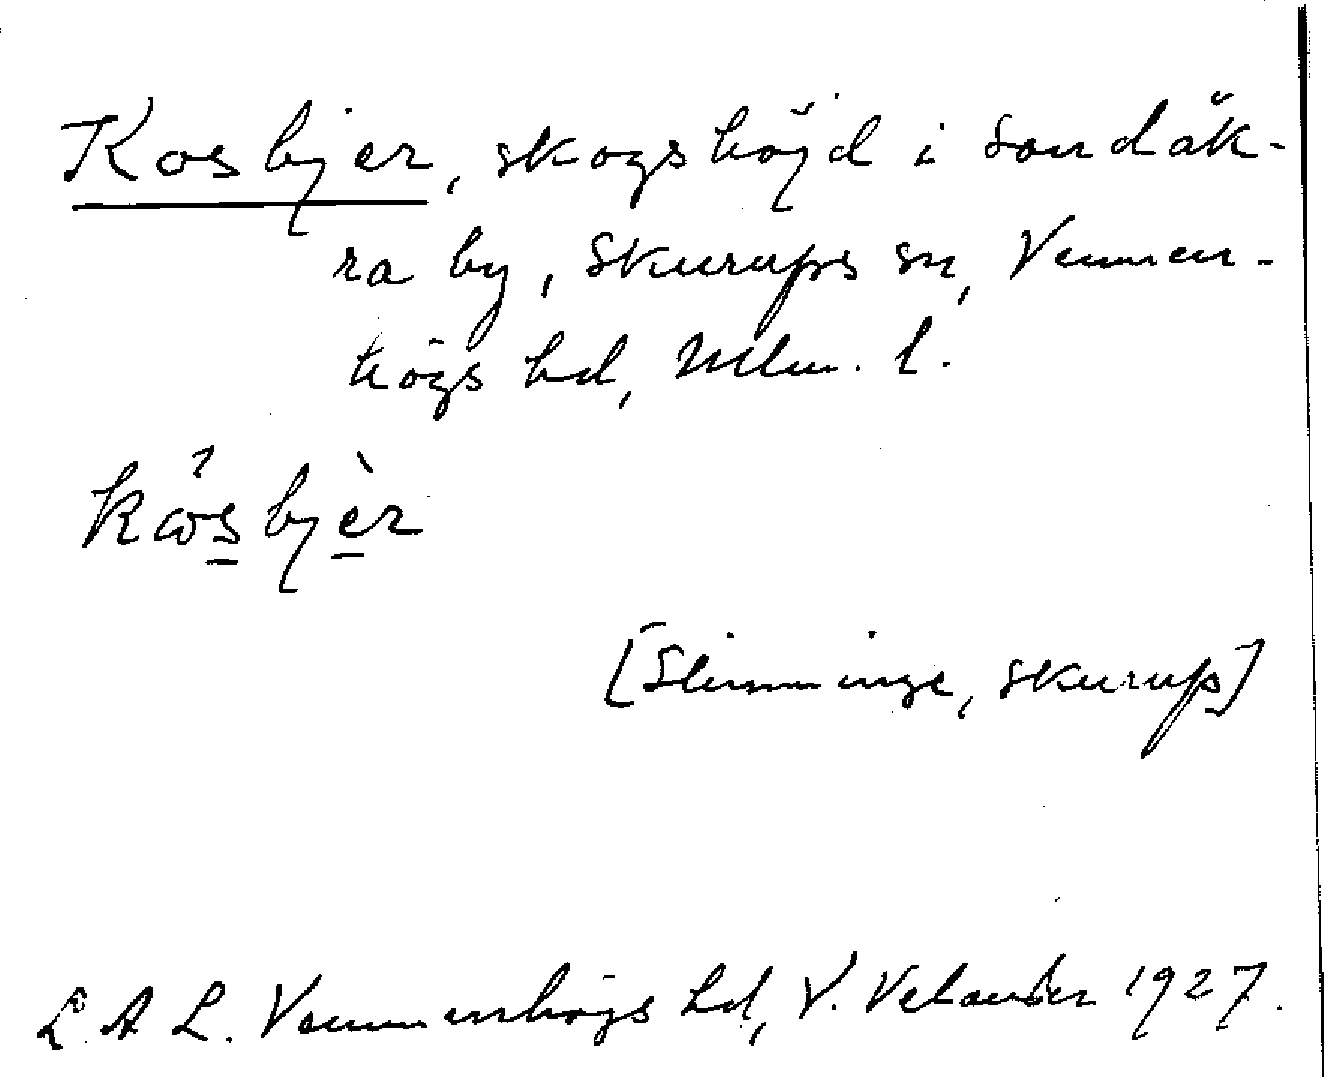 Kosbjer, skogshöjd i Sandåk-
ra by, Skurups sn, Vemmen-
högs hd, Mlm. l.
kåsbjèr
[Slimminge, Skurup]
L. A L. Vemmenhögs hd, V. Velander 1927.